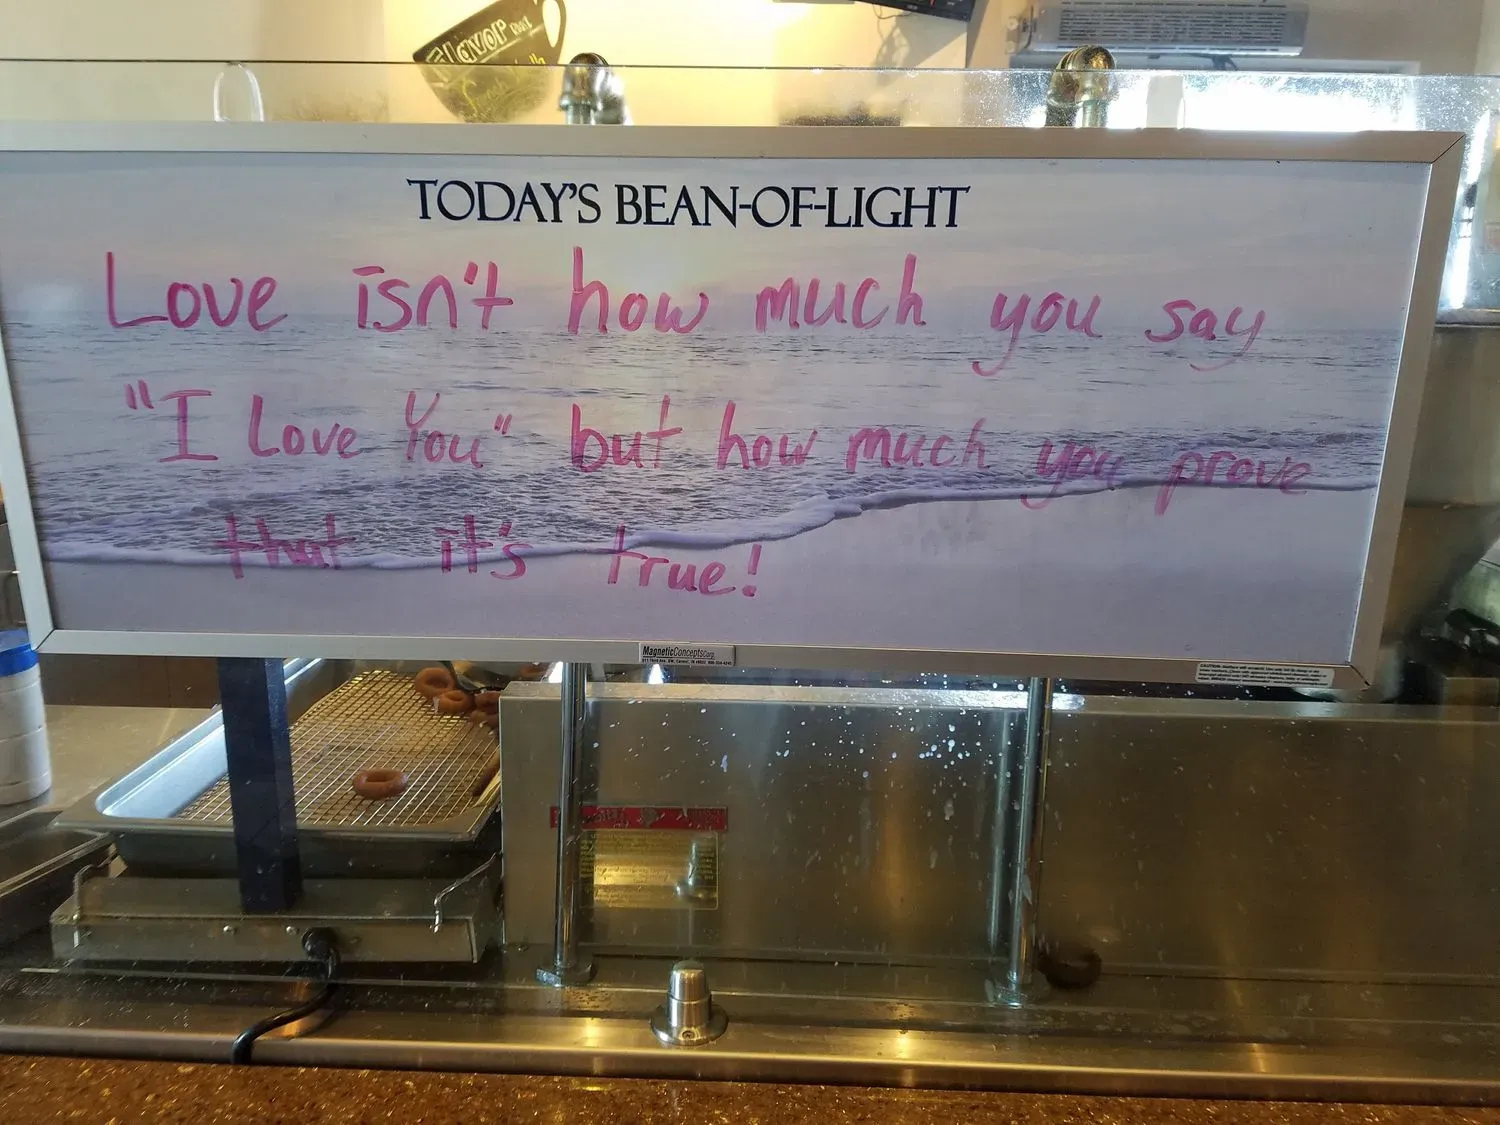 Flavor
TODAY'S BEAN-OF-LIGHT
Love isn't how much you say
"I Love You" but how much you prove
that it's true!
MagneticConcepts Corp.